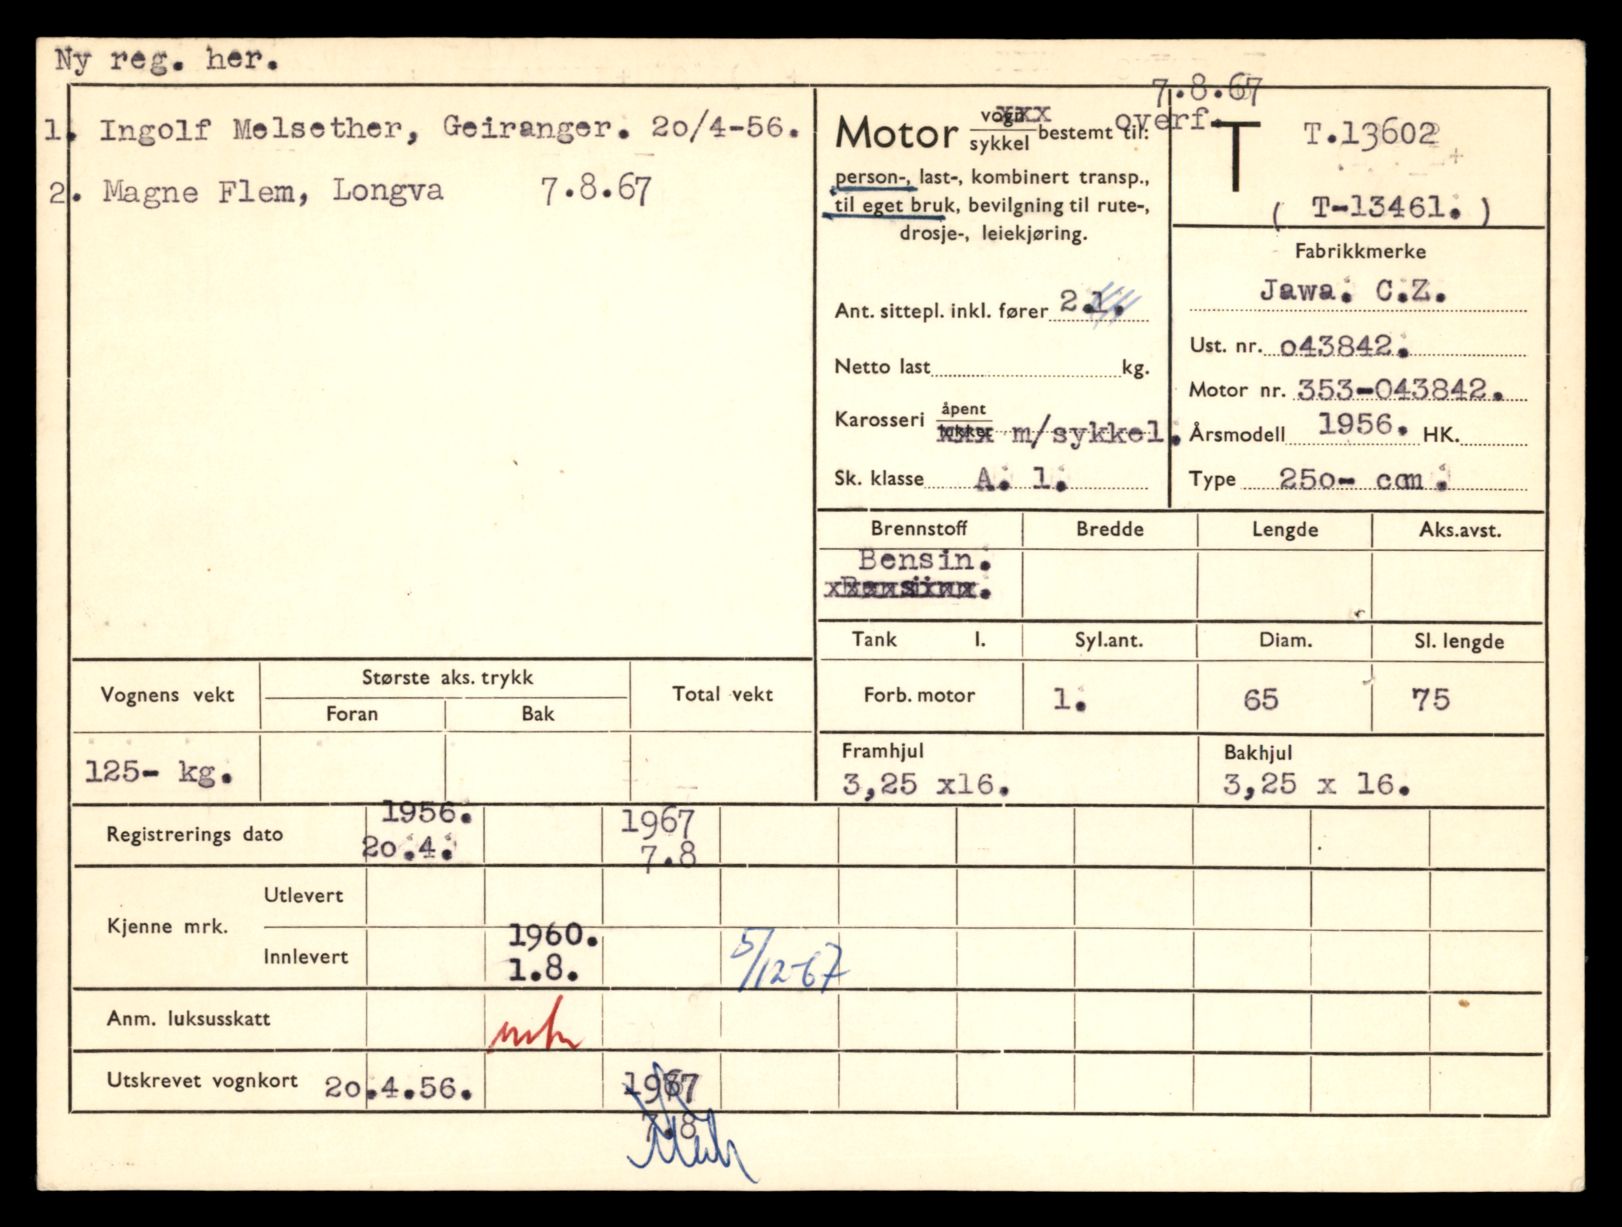 Ny reg. her.
1. Ingolf Melsether, Geiranger. 20/4-56.
2. Magne Flem, Longva 7.8.67
Motor vogn xxx
sykkel bestemt til:
person-, last-, kombinert transp.,
til eget bruk, bevilgning til rute-,
drosje-, leiekjøring.
7.8.67
overf.
T T.13602
( T-13461. )
Ant. sittepl. inkl. fører 2.1.
Netto last kg.
Karosseri åpent
lukket xxx m/sykkel.
Sk. klasse A. 1.
Fabrikkmerke
Jawa. C.Z.
Ust. nr. 043842.
Motor nr. 353-043842.
Årsmodell 1956. HK.
Type 250- ccm.
Brennstoff Bredde Lengde Aks.avst.
Bensin.
xBensinx.
Tank l. Syl.ant. Diam. Sl. lengde
Forb. motor 1. 65 75
Framhjul Bakhjul
3,25 x16. 3,25 x 16.
Vognens vekt Største aks. trykk Total vekt
Foran Bak
125- kg.
Registrerings dato 1956. 1967
20.4. 7.8
Kjenne mrk. Utlevert
Innlevert 1960. 5/12-67
1.8.
Anm. luksusskatt
Utskrevet vognkort 20.4.56. 1967
7.8